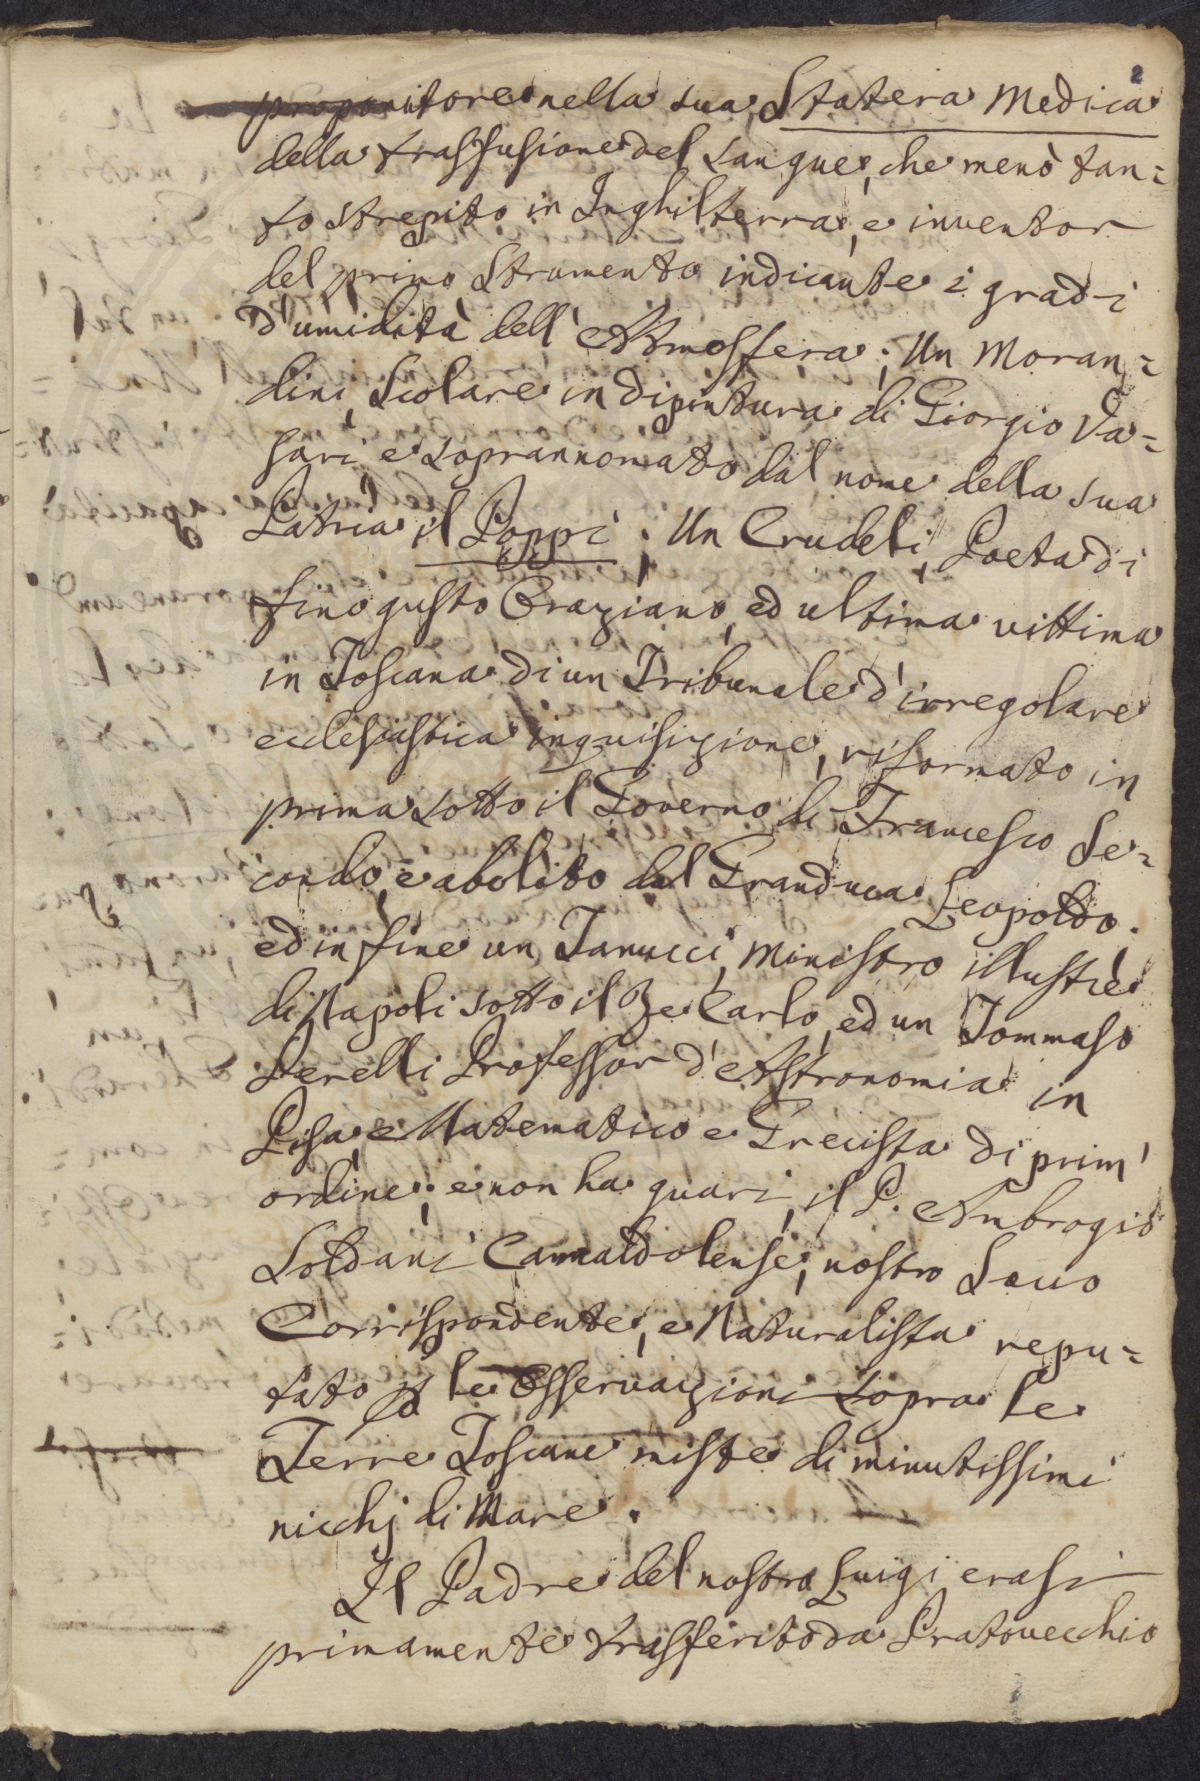 2
propanitore nella sua Statera Medica
della trasfusione del sangue, che menò tan=
to strepito in Inghilterra, e inventor
del primo Strumento indicante i gradi
d'umidità dell'Atmosfera; Un Moran=
dini, Scolare in dipintura di Giorgio Va=
sari, e soprannomato dal nome della sua
Patria il Poppi; Un Crudeli, Poeta di
fino gusto Oraziano, ed ultima vittima
in Toscana di un Tribunale d'irregolare
ecclesiastica inquisizione, riformato in
prima sotto il Governo di Francesco Se=
condo, e abolito dal Granduca Leopoldo.
ed in fine un Tanucci, Ministro illustre
di Napoli sotto il Re Carlo, ed un Tommaso
Perelli Professor d'Astronomia in
Pisa, e Matematico e Grecista di prim'
ordine; e non ha guari, il P. Ambrogio
Soldani Camaldolense, nostro Socio
Corrispondente, e Naturalista repu=
tato p le Osservazioni sopra le
Terre Toscane miste di minutissimi
nicchj di Mare.
Il Padre del nostro Luigi erasi
primamente trasferito da Pratovecchio